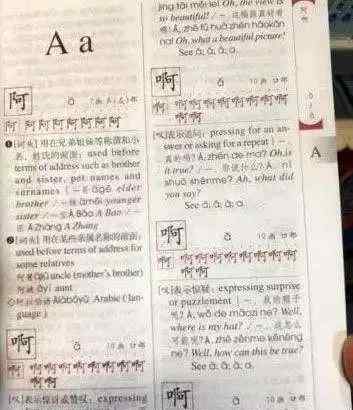 A a
阿
ā
阿 阿 阿 阿 阿 阿 阿 阿
❶[词头] 用在兄弟姐妹等称谓和小
名、姓氏的前面: used before
terms of address such as brother
and sister, pet names and
surnames: ~哥 āgē elder
brother / ~妹 āmèi younger
sister / ~宝 Ā Bǎo A Bao / ~
张 Ā Zhāng A Zhang
❷[词头] 用在某些亲属名称的前面:
used before terms of address for
some relatives
阿舅 uncle (mother's brother)
阿姨 āyí aunt
◇阿拉伯语 Ālābóyǔ Arabic (lan-
guage)
啊
ā
10 画 口 部
啊 啊 啊 啊 啊 啊 啊
啊 啊 啊
[叹]表示惊讶或赞叹: expressing
jīng tài měi le! Oh, the view is
so beautiful! / ~, 这幅画真好看
哪! À, zhè fú huà zhēn hǎokàn
na! Oh, what a beautiful picture!
See á; ǎ; à; a.
啊
á
10 画 口 部
啊 啊 啊 啊 啊 啊 啊 啊
啊 啊
[叹]表示追问: pressing for an an-
swer or asking for a repeat: ~,
真的吗? Á, zhēn de ma? Oh, is
it true? / ~, 你说什么? Á, nǐ
shuō shénme? Ah, what did
you say?
See ā; ǎ; à; a.
啊
ǎ
10 画 口 部
啊 啊 啊 啊 啊 啊 啊 啊
啊 啊
[叹]表示惊疑: expressing surprise
or puzzlement: ~, 我的帽子
呢? Ǎ, wǒ de màozi ne? Well,
where is my hat? / ~, 这怎么
可能呢? Ǎ, zhè zěnme kěnéng
ne? Well, how can this be true?
See ā; á; à; a.
啊
à
10 画 口 部
A